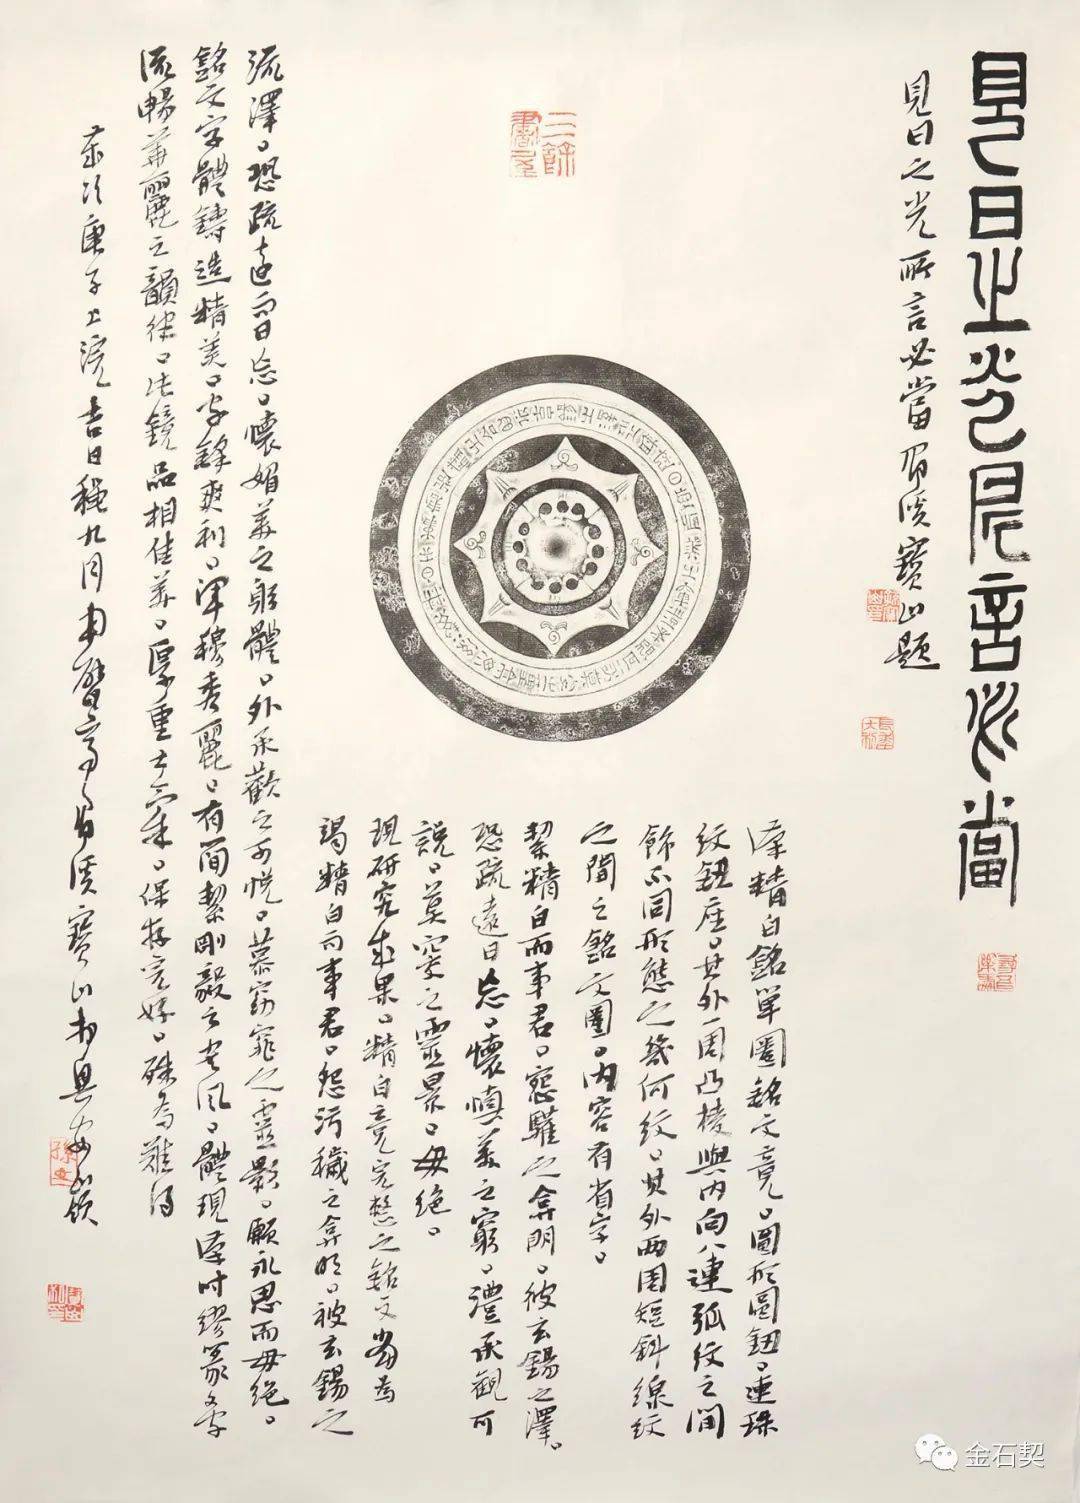 見日之光所言必當
見日之光所言必當 眉溪寶山題
三餘書屋
漢精白銘單圈銘文竟。圖形圓鈕。連珠
紋鈕座。其外一周凸棱與內向八連弧紋之間
飾不同形態之幾何紋。其外兩周短斜線紋
之間之銘文圈。內容有省字。
絜精白而事君。窓驩之弇明。彼玄錫之澤。
恐疏遠日忘。懷慎美之窮。澧承觀可
説。莫窔之靈景。毋絕。
現研究成果。精白竟完整之銘文當為
竭精白而事君。怨污穢之弇明。被玄錫之
流澤。恐疏遠而日忘。懷媚美之躬體。外承歡之可悅。慕窈窕之靈影。願永思而毋絕。
銘文字體鑄造精美。字鋒爽利。渾穆秀麗。有簡絜剛毅之書風。體現漢時繆篆文字
流暢華麗之韻律。此鏡品相佳美。厚重。保存完好。殊為難得
歲次庚子上浣吉日穐九月眉溪寶山
金石契